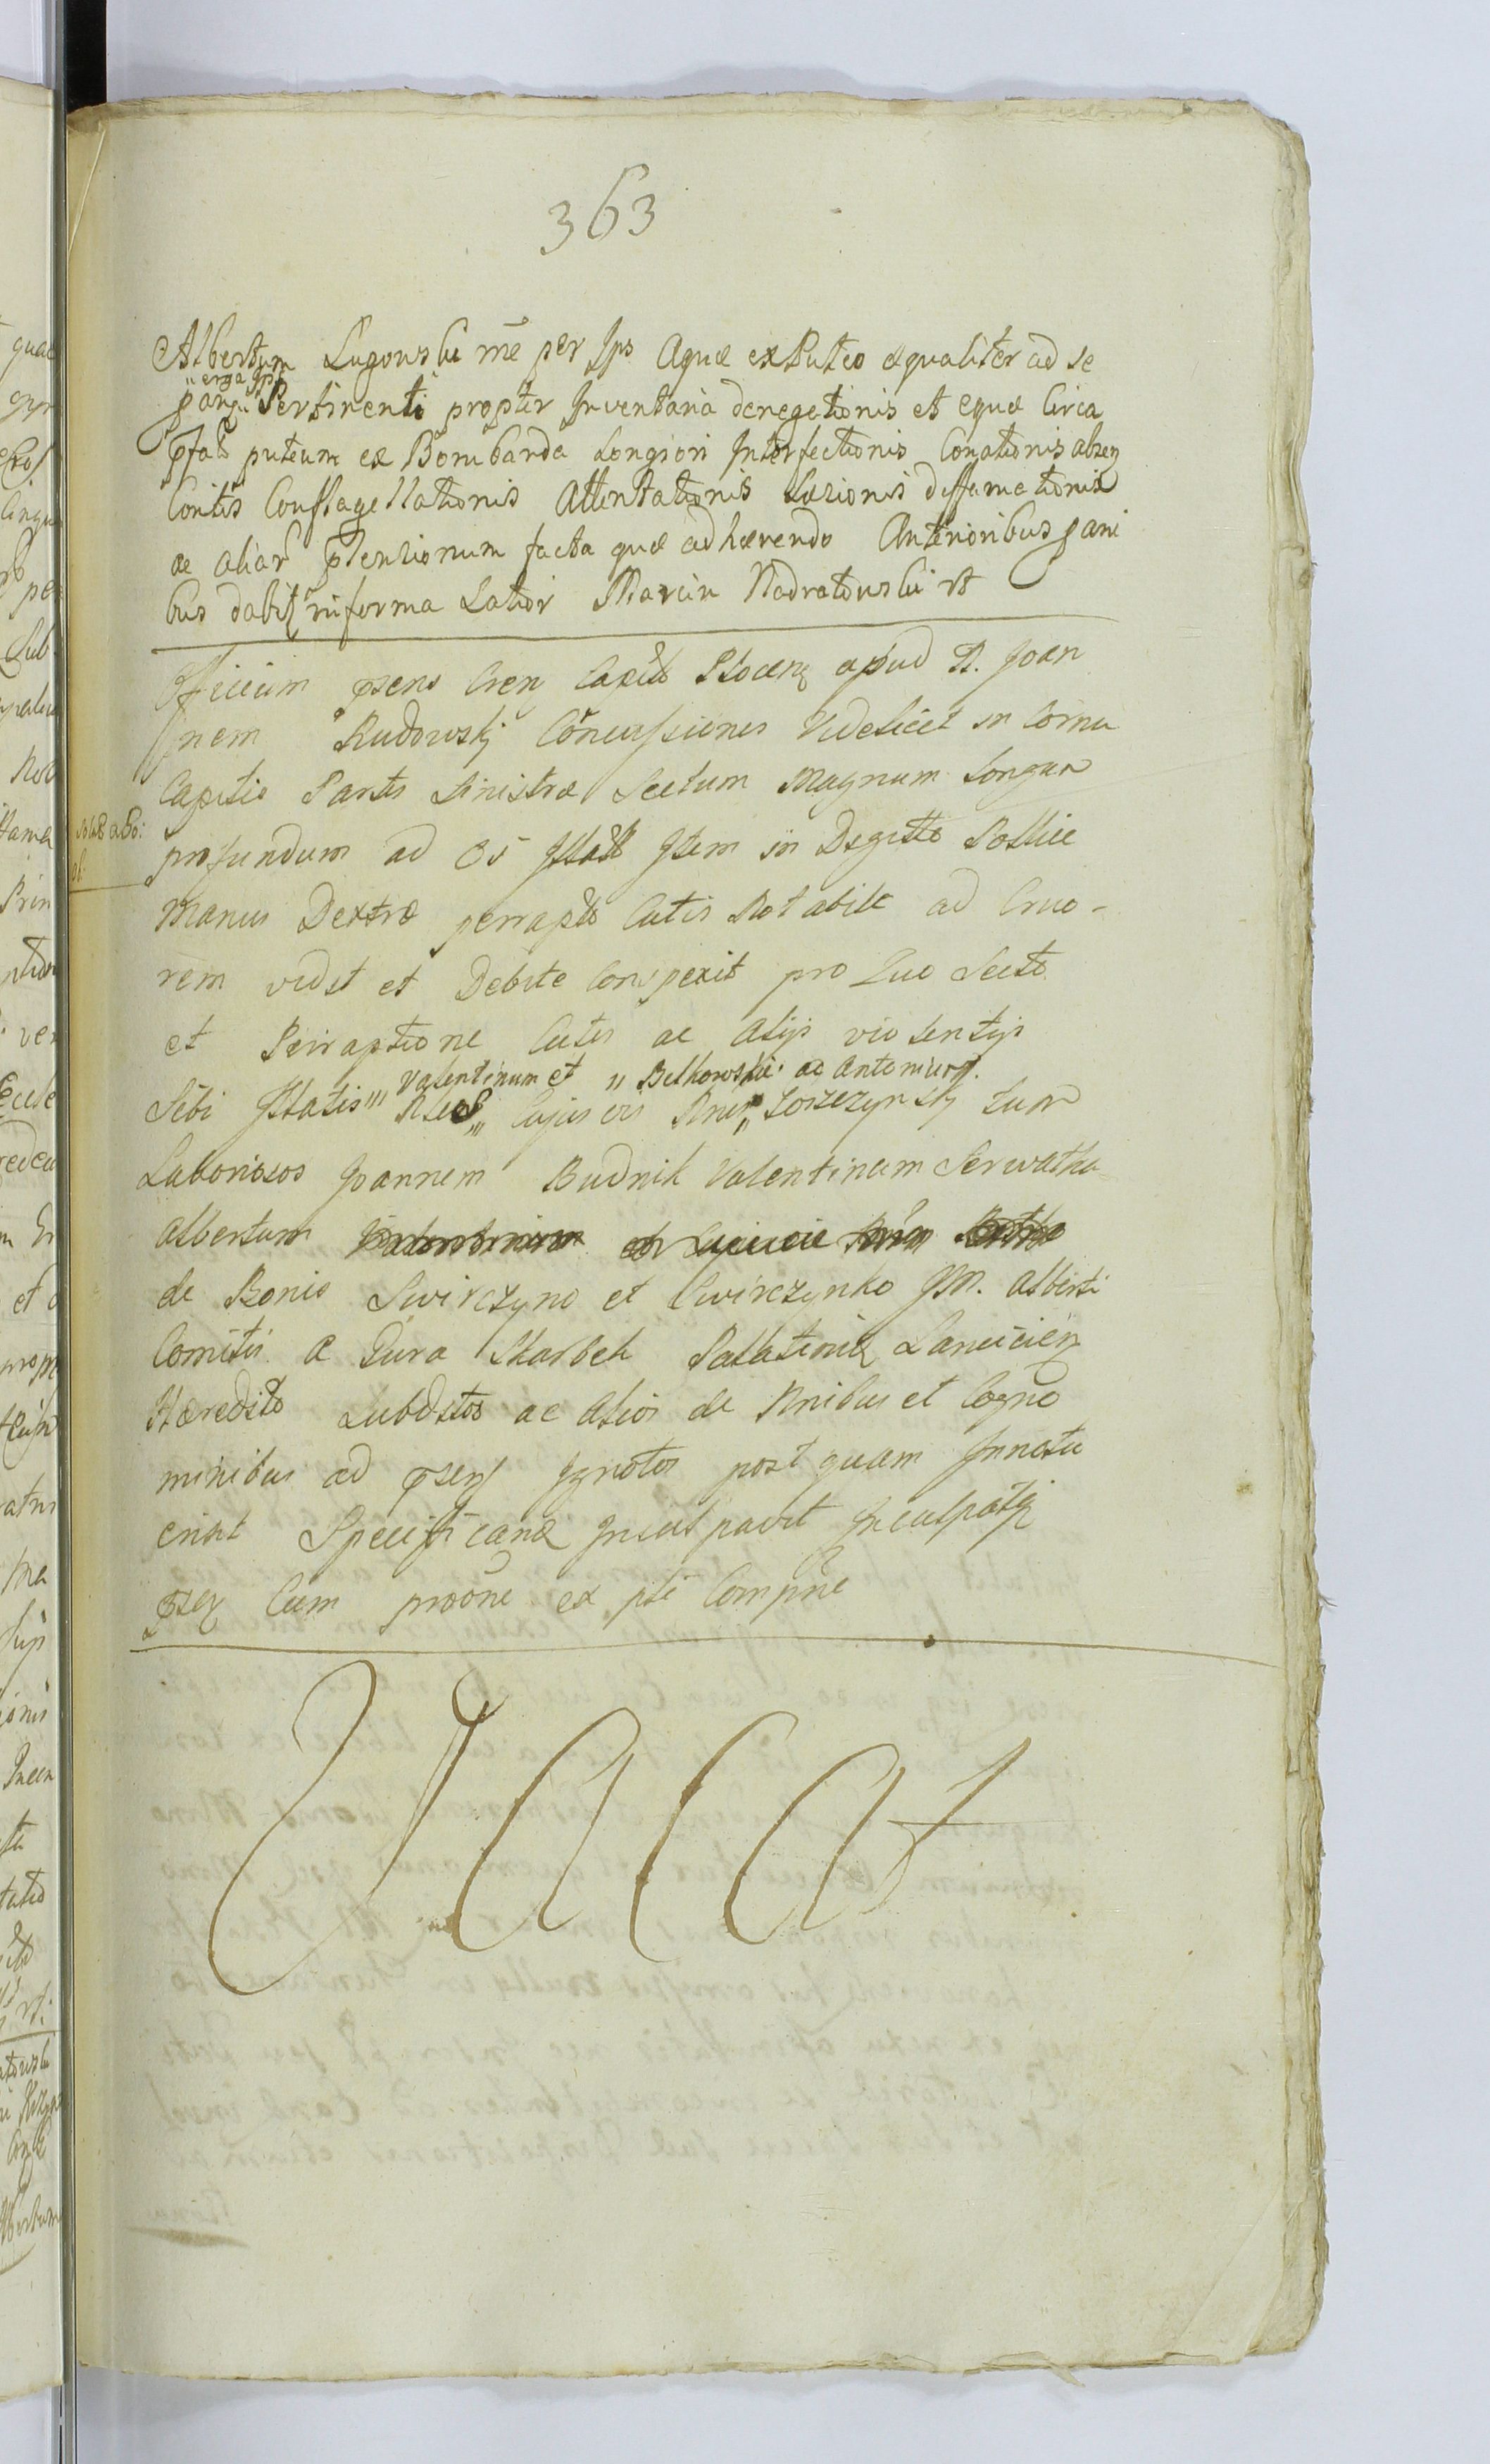 363
Albertum Lugowski me per Ips Aquæ ex Puteo æqualiter ad se
"erga Ips
Pertinenti propter Inventaria denegationis et equæ Circa
pfat puteum ex Bombarda Longiori Interfectionis Conationis absen
Contis Conflagellationis Attentationis Læzionis diffamationis
ac aliar plenzionum facta quæ adhærendo Anterioribus pani
bus dabit informa Latior Marcin Nadratowski rt
Officium psens Cren Capit Plocen apud N. Joan
nem Rudowskj Concussiones Videlicet in Cornu
Capitis Partis Sinistræ Sectum Magnum Longum
profundum ad Os Illat Item in Degitto Pollice
Manus Dextræ perrapto Cutis Notabile ad Cruo-
rem vidit et Debite Conspexit pro Quo Secto
et Perraptione Cutis ac Alijs violentijs
Valentinum et " Belkowskie ac Antonium
Sibi Illatis''' Cujusvis
Laboriosos Joannem Budnik Valentinum Serwatka
Albertum
de Bonis Swirczyno et Swirczynko JM. Alberti
Comitis a Gura Skarbek Pallatini Lancicien
Hæredit Subditos ac Alios de Nnibus et Cogno
minibus ad psens Ignotos postquam Innotu
erint Specificand Inculpavit Inculpatq
psen Cum proone ex pte Compne
Vacat